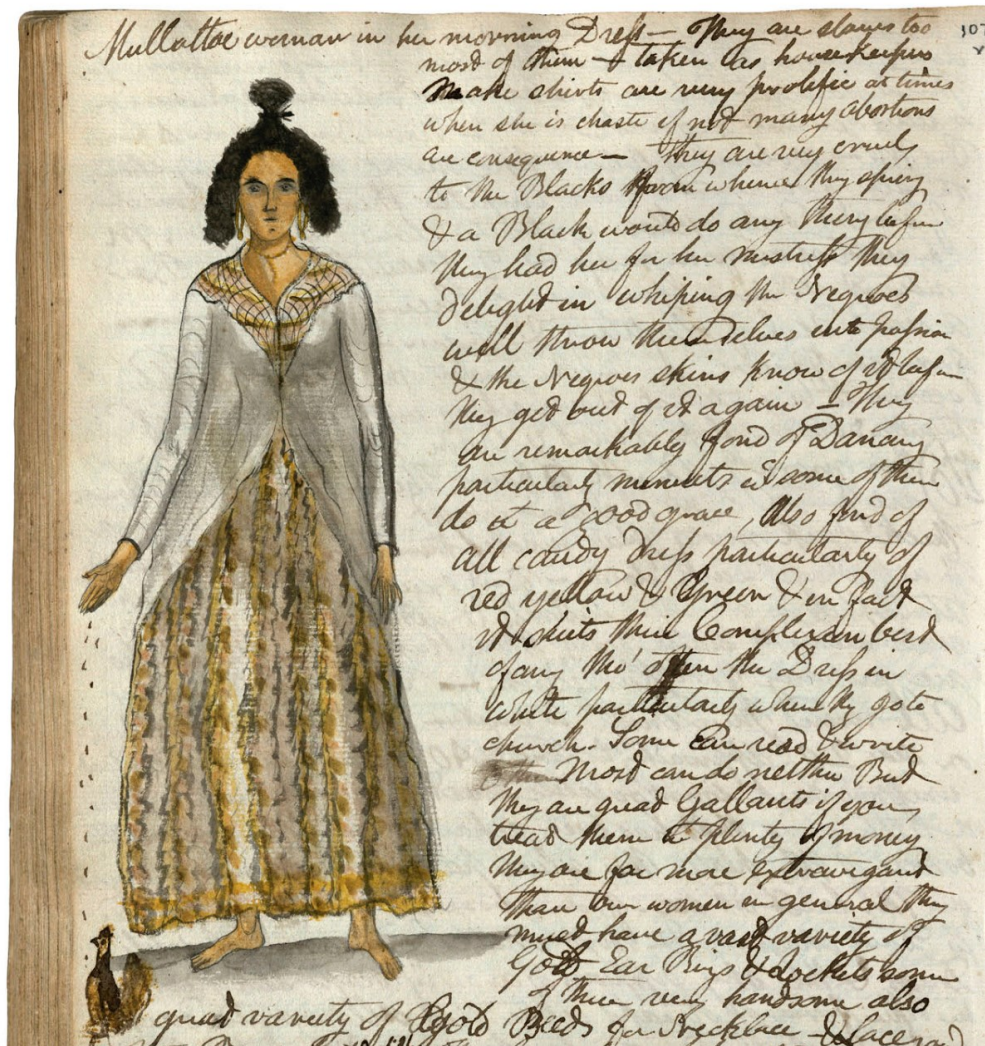 Mullattoe woman in her morning Dress — They are slaves too
107
most of them — & taken as housekeepers
Make shirts are very prolific at times
when she is chaste if not many abortions
are consequence — They are very cruely
to the Blacks from whence they spring
& a Black would do any thing before
they had her for her mistress they
delight in whiping the Negroes
will throw themselves into passion
& the Negroes skins know of it before
they get out of it again — They
are remarkably fond of Dancing
particularly minuets & some of them
do it a good grace, Also fond of
all caudy dress particularly of
red yellow & Green & in fact
it shits their Complexion best
of any tho' often the Dress in
white particularly when they go to
church. Some can read & write
Most can do neither But
they are great Gallants if you
tread them to plenty of money
they are far more extravagant
than our women in general they
must have a vast variety of
Gold Ear Rings & Lockets some
of them very handsome also
great variety of Gold Beeds for Necklace